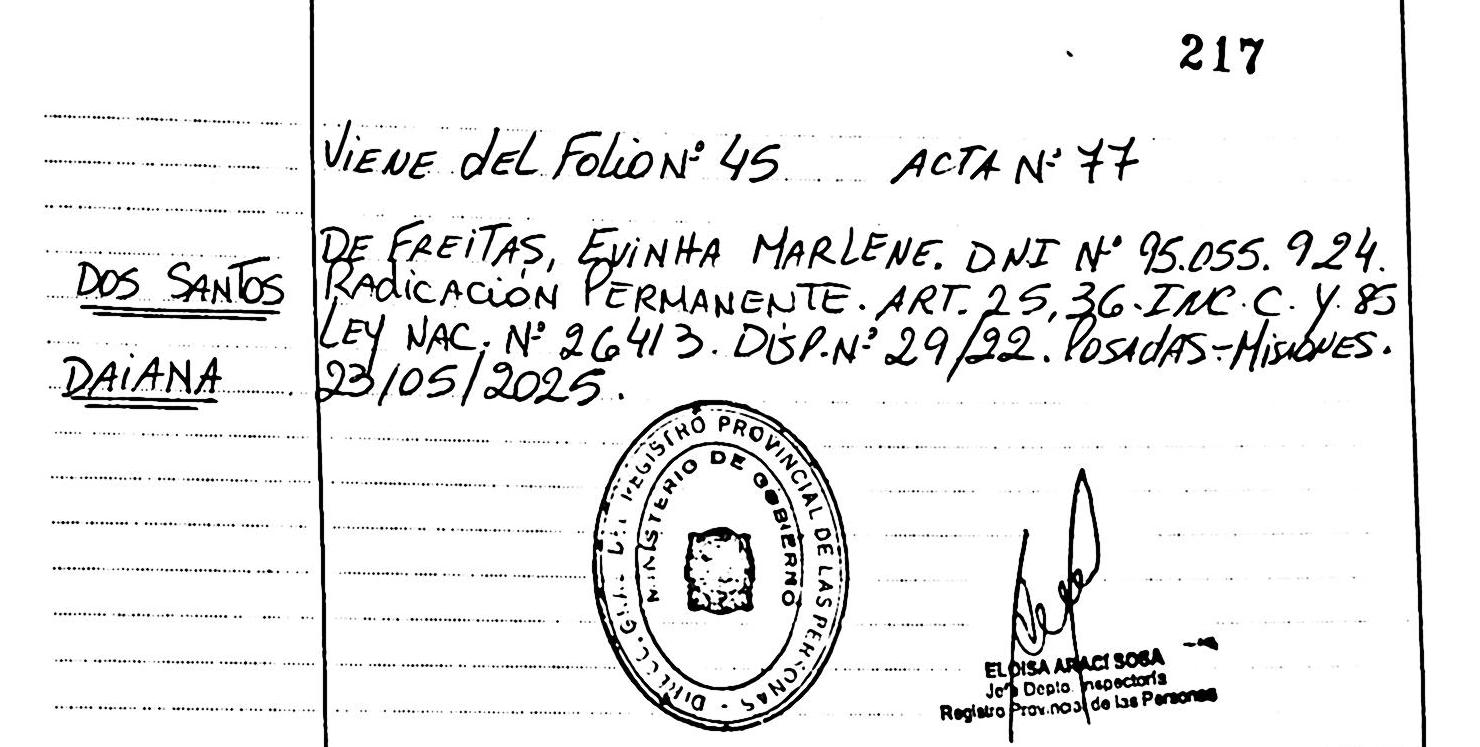 217
VIENE dEL FoLio Nº 45 ACTA Nº 77
DOS SANTOS
DAiANA
DE FREiTAS, EVINHA MARLENE. DNI Nº 95.055.924.
RAdiCACIÓN PERMANENTE. ART. 25, 36. INC. C. Y. 85
LEY NAC. Nº 26413. DISP. Nº 29/22. POSAdAS-MISIONES.
23/05/2025.
REGISTRO PROVINCIAL DE LAS PERSONAS
MINISTERIO DE GOBIERNO
ELOISA ARACI SOSA
Jefa Depto. Inspectoría
Registro Provincial de las Personas